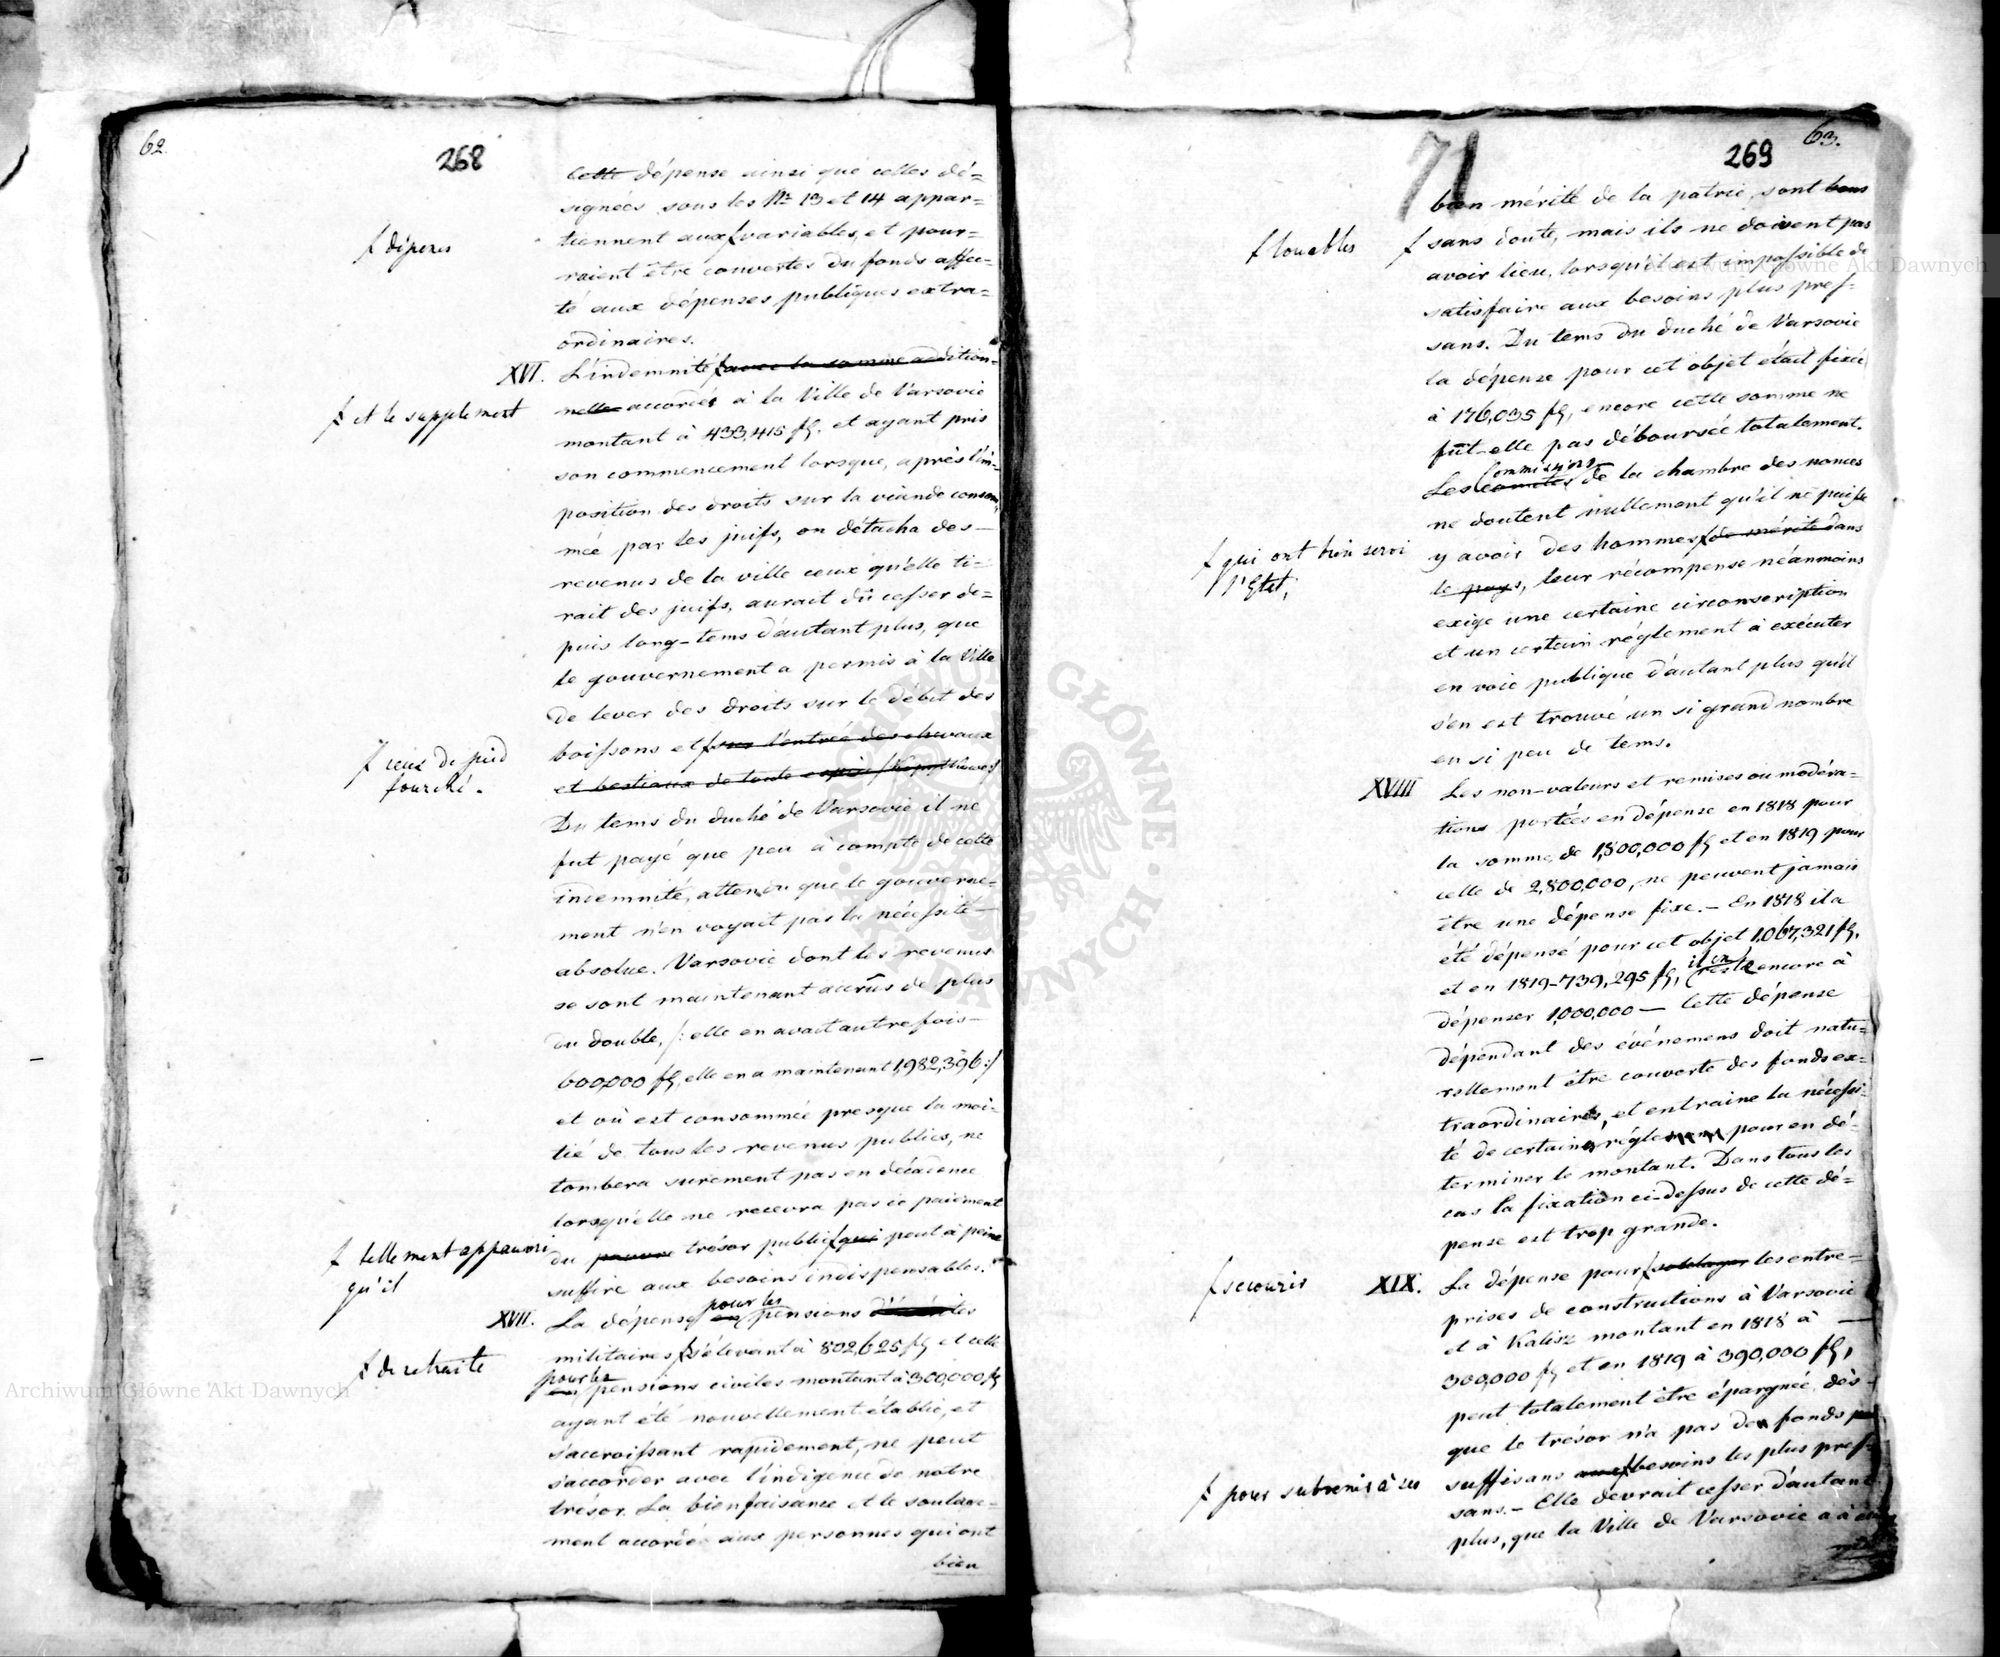 62.
268
Cette dépense ainsi que celles dé=
signées sous les Nr 13 et 14 appar=
tiennent aux ƒ variables, et pour=
ƒ dépenses
raient être couvertes du fonds affec=
té aux dépenses publiques extra=
ordinaires.
XVI. L'indemnité ƒ avec la somme addition=
ƒ et le supplement
nelle accordés à la Ville de Varsovie
montant à 433,415 fl. et ayant pris
son commencement lorsque, après l'im=
position des droits sur la viande consom
mée par les juifs, on détacha des
revenus de la ville ceux qu'elle ti=
rait des juifs, aurait dû cesser de=
puis long-tems d'autant plus, que
le gouvernement a permis à la Ville
de lever des droits sur le débit des
boissons et ƒ sur l'entrée des chevaux
ƒ ceux de pied
fourché.
et bestiaux de toute espèce
Du tems du duché de Varsovie il ne
fut payé que peu à compte de cette
indemnité, attendu que le gouverne=
ment n'en voyait pas la nécessité
absolue. Varsovie dont les revenus
se sont maintenant accrûs de plus
du double, /: elle en avait autrefois
600,000 fl, elle en a maintenant 1,982,396 :/
et où est consommée presque la moi=
tié de tous les revenus publics, ne
tombera surement pas en décadence
lorsqu'elle ne recevra pas ce paiement
du pauvre trésor public ƒ qui peut à peine
ƒ tellement appauvri
qu'il
suffire aux besoins indispensables.
XVII. La dépense pour les pensions
militaires ƒ s'élevant à 802,625 fl et celle
ƒ de retraite
pour les pensions civiles montant à 300,000 fl
ayant été nouvellement établie, et
s'accroissant rapidement, ne peut
s'accorder avec l'indigence de notre
trésor. La bienfaisance et le soulage=
ment accordés aux personnes qui ont
bien
63.
269
71
bien mérité de la patrie, sont bons
ƒ louables
ƒ sans doute, mais ils ne doivent pas
avoir lieu, lorsqu'il est impossible de
satisfaire aux besoins plus pres=
sans. Du tems du duché de Varsovie
la dépense pour cet objet était fixée
à 176,035 fl, encore cette somme ne
fût-elle pas déboursée totalement.
Commissions
Les comités de la chambre des nonces
ne doutent nullement qu'il ne puisse
y avoir des hommes ƒ de mérite dans
ƒ qui ont bien servi
l'Etat,
le pays, leur récompense néanmoins
exige une certaine circonscription
et un certain réglement à exécuter
en voie publique d'autant plus qu'il
s'en est trouvé un si grand nombre
en si peu de tems.
XVIII Les non-valeurs et remises ou modéra=
tions portées en dépense en 1818 pour
la somme de 1,800,000 fl et en 1819 pour
celle de 2,800,000, ne peuvent jamais
être une dépense fixe. – En 1818 il a
été dépensé pour cet objet 1,067,321 fl,
et en 1819 – 739,295 fl, il en reste encore à
dépenser 1,000,000 — Cette dépense
dépendant des événemens doit natu=
rellement être couverte des fonds ex=
traordinaires, et entraine la nécessi=
té de certains réglemens pour en dé=
terminer le montant. Dans tous les
cas la fixation ci-dessus de cette dé=
pense est trop grande.
XIX. La dépense pour ƒ soulager les entre=
ƒ secourir
prises de constructions à Varsovie
et à Kalisz montant en 1818 à —
300,000 fl et en 1819 à 390,000 fl,
peut totalement être épargnée, dès
que le trésor n'a pas de fonds
suffisans aux ƒ besoins les plus pres=
ƒ pour subvenir à ces
sans. – Elle devrait cesser d'autant
plus, que la Ville de Varsovie a
Archiwum Główne Akt Dawnych
Archiwum Główne Akt Dawnych
ARCHIWUM GŁÓWNE AKT DAWNYCH